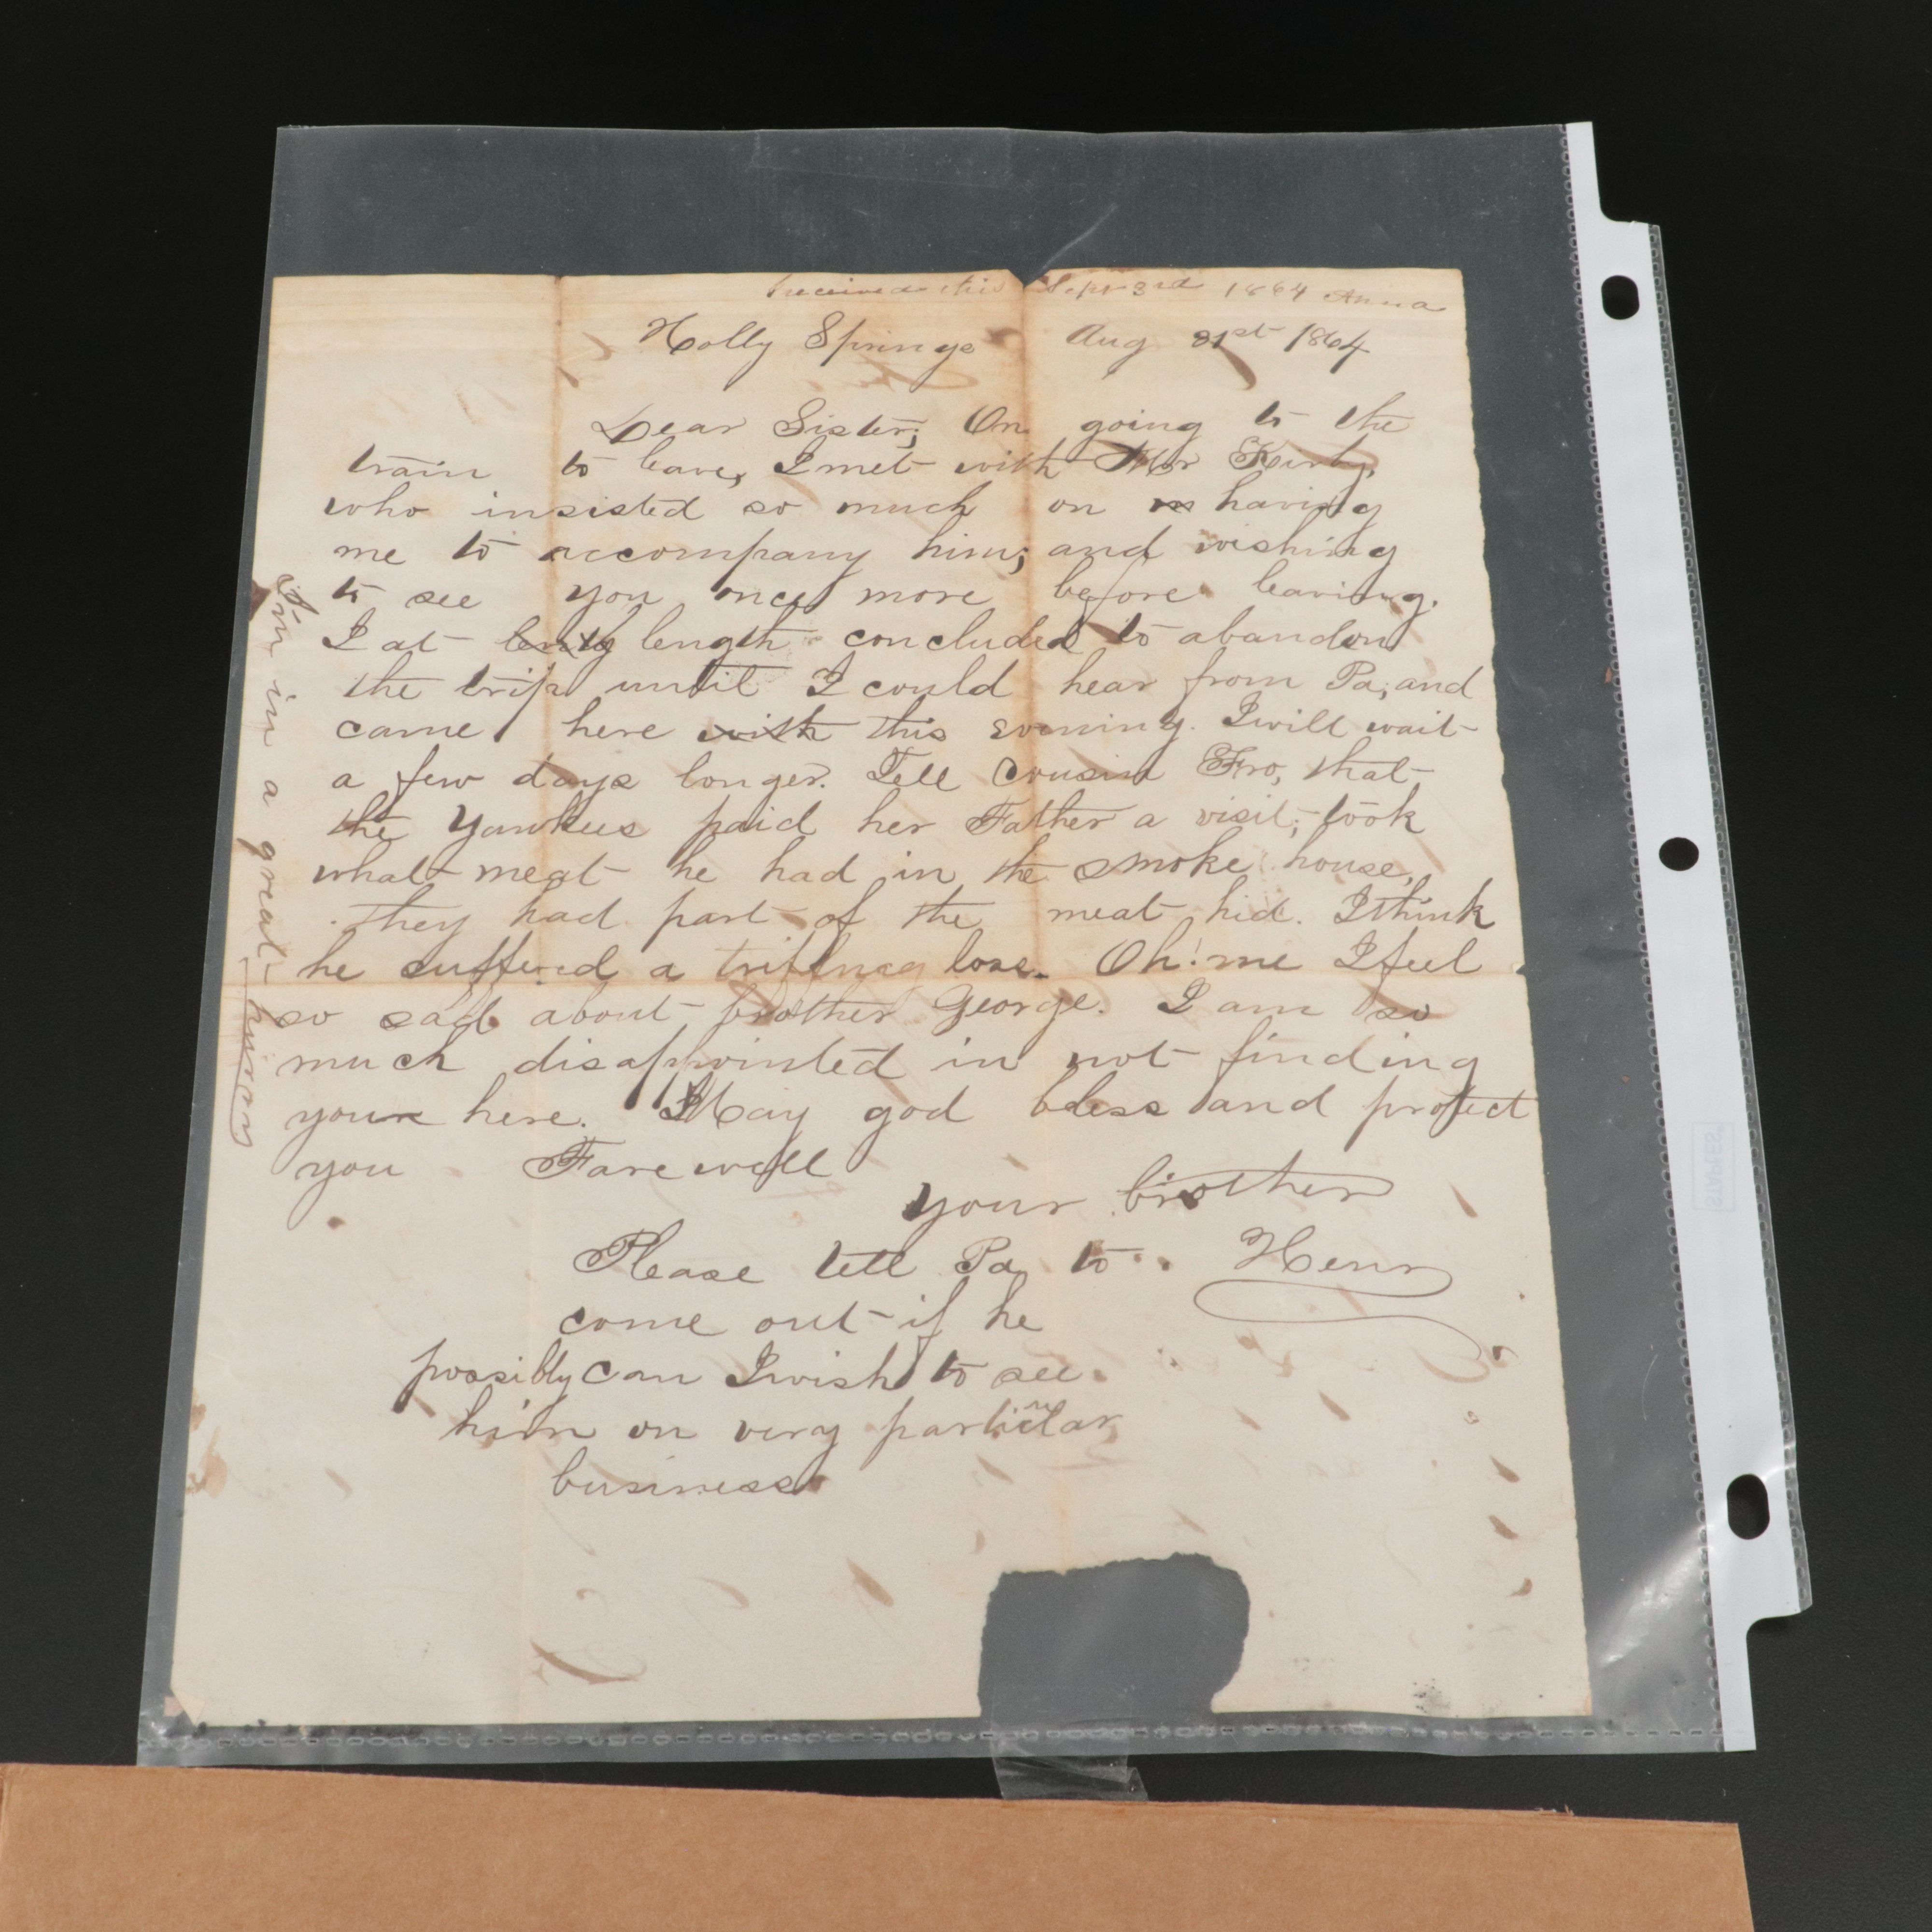 received this Sept 3rd 1864 Anna
Holly Springs Aug 31st 1864
Dear Sister; On going to the
train to leave, I met with Mr Kirby,
who insisted so much on having
me to accompany him; and wishing
to see you once more before leaving.
I at length concluded to abandon
the trip until I could hear from Pa, and
came here with this evening. I will wait
a few days longer. Tell Cousin Fro, that
the Yankees paid her Father a visit; took
what meat he had in the smoke house,
they had part of the meat hid. I think
he suffered a trifling loss. Oh! me I feel
so sad about brother George. I am so
much disappointed in not finding
you here. May god bless and protect
you Farewell
your brother
Henry
Please tell Pa to
come out if he
possibly can I wish to see
him on very particular
business
I'm in a great
STAPLES